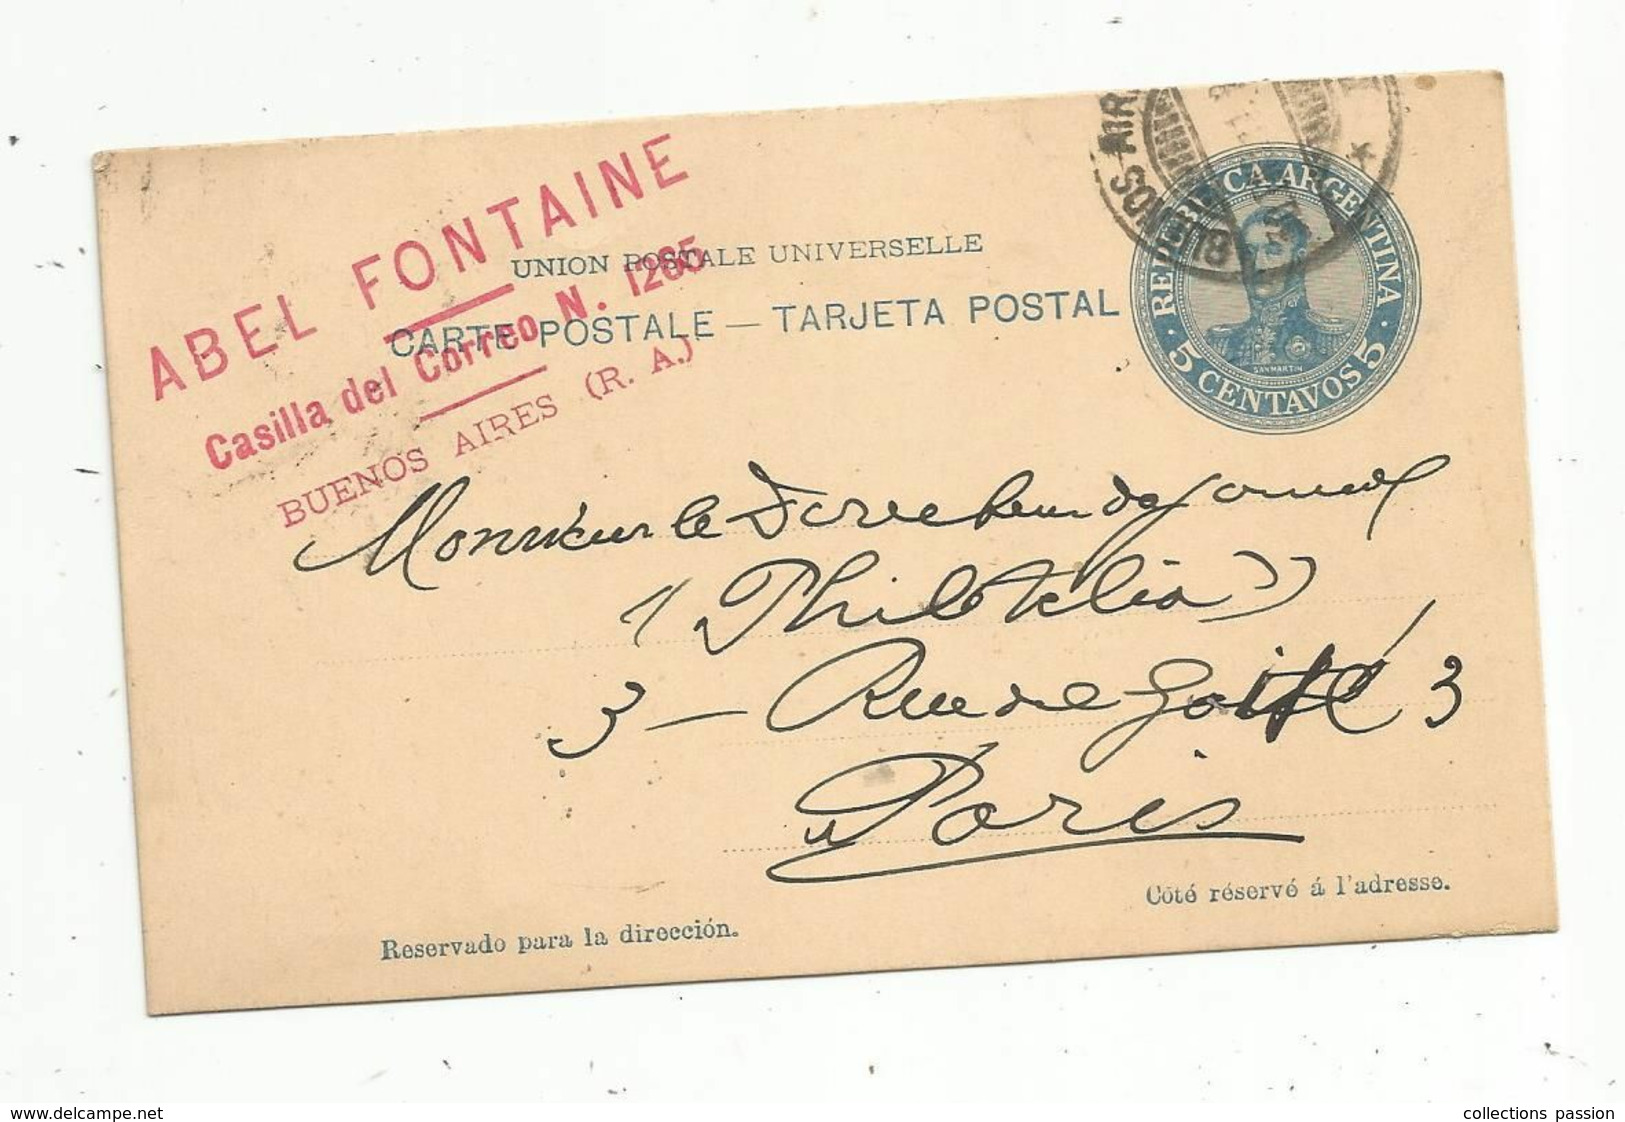 ABEL FONTAINE
Casilla del Correo N. 1265
BUENOS AIRES (R. A.)
UNION POSTALE UNIVERSELLE
CARTE POSTALE — TARJETA POSTAL
REPUBLICA ARGENTINA
SAN MARTIN
5 CENTAVOS 5
BUENOS AIR
Monsieur le Directeur du Journal
"Philatelia"
3 — Rue de 3
Paris
Reservado para la dirección.
Côté réservé á l'adresse.
www.delcampe.net
collections passion